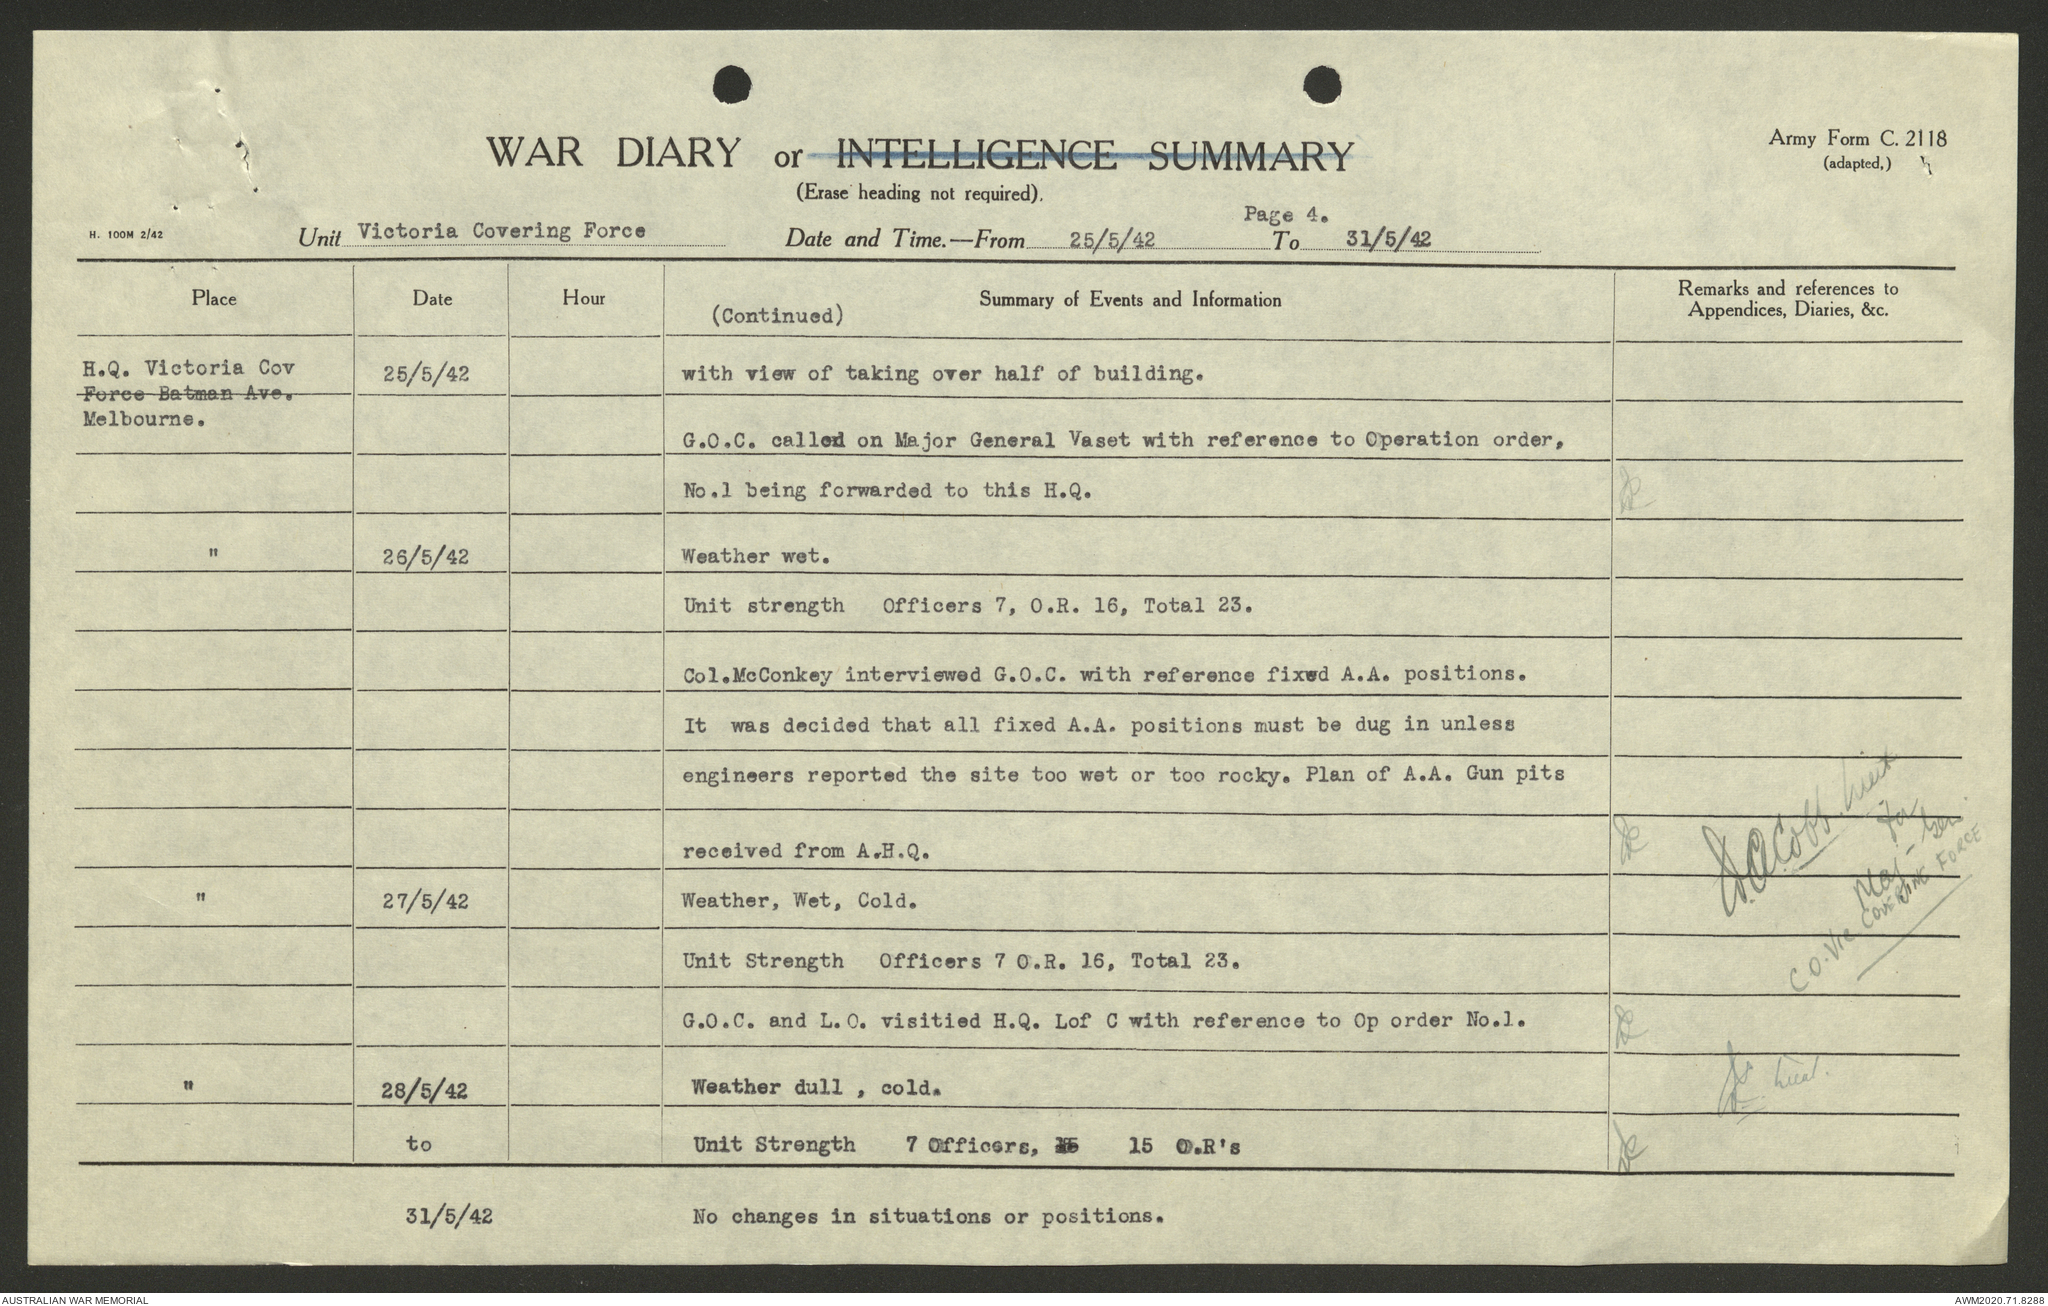 WAR DIARY or INTELLIGENCE SUMMARY
(Erase heading not required).
Army Form C. 2118
(adapted.)
Page 4.
H. 100M 2/42
Unit Victoria Covering Force
Date and Time.—From 25/5/42 To 31/5/42
Place Date Hour Summary of Events and Information Remarks and references to
Appendices, Diaries, &c.
(Continued)
H.Q. Victoria Cov 25/5/42 with view of taking over half of building.
Force Batman Ave.
Melbourne.
G.O.C. called on Major General Vaset with reference to Operation order,
No.1 being forwarded to this H.Q.
" 26/5/42 Weather wet.
Unit strength Officers 7, O.R. 16, Total 23.
Col.McConkey interviewed G.O.C. with reference fixed A.A. positions.
It was decided that all fixed A.A. positions must be dug in unless
engineers reported the site too wet or too rocky. Plan of A.A. Gun pits
received from A.H.Q.
" 27/5/42 Weather, Wet, Cold.
Unit Strength Officers 7 O.R. 16, Total 23.
G.O.C. and L.O. visitied H.Q. Lof C with reference to Op order No.1.
" 28/5/42 Weather dull , cold.
to Unit Strength 7 Officers, 15 O.R's
31/5/42 No changes in situations or positions.
Lieut
for
Maj-Gen
C.O. Vic COVERING FORCE
Lieut.
AUSTRALIAN WAR MEMORIAL
AWM2020.71.8288